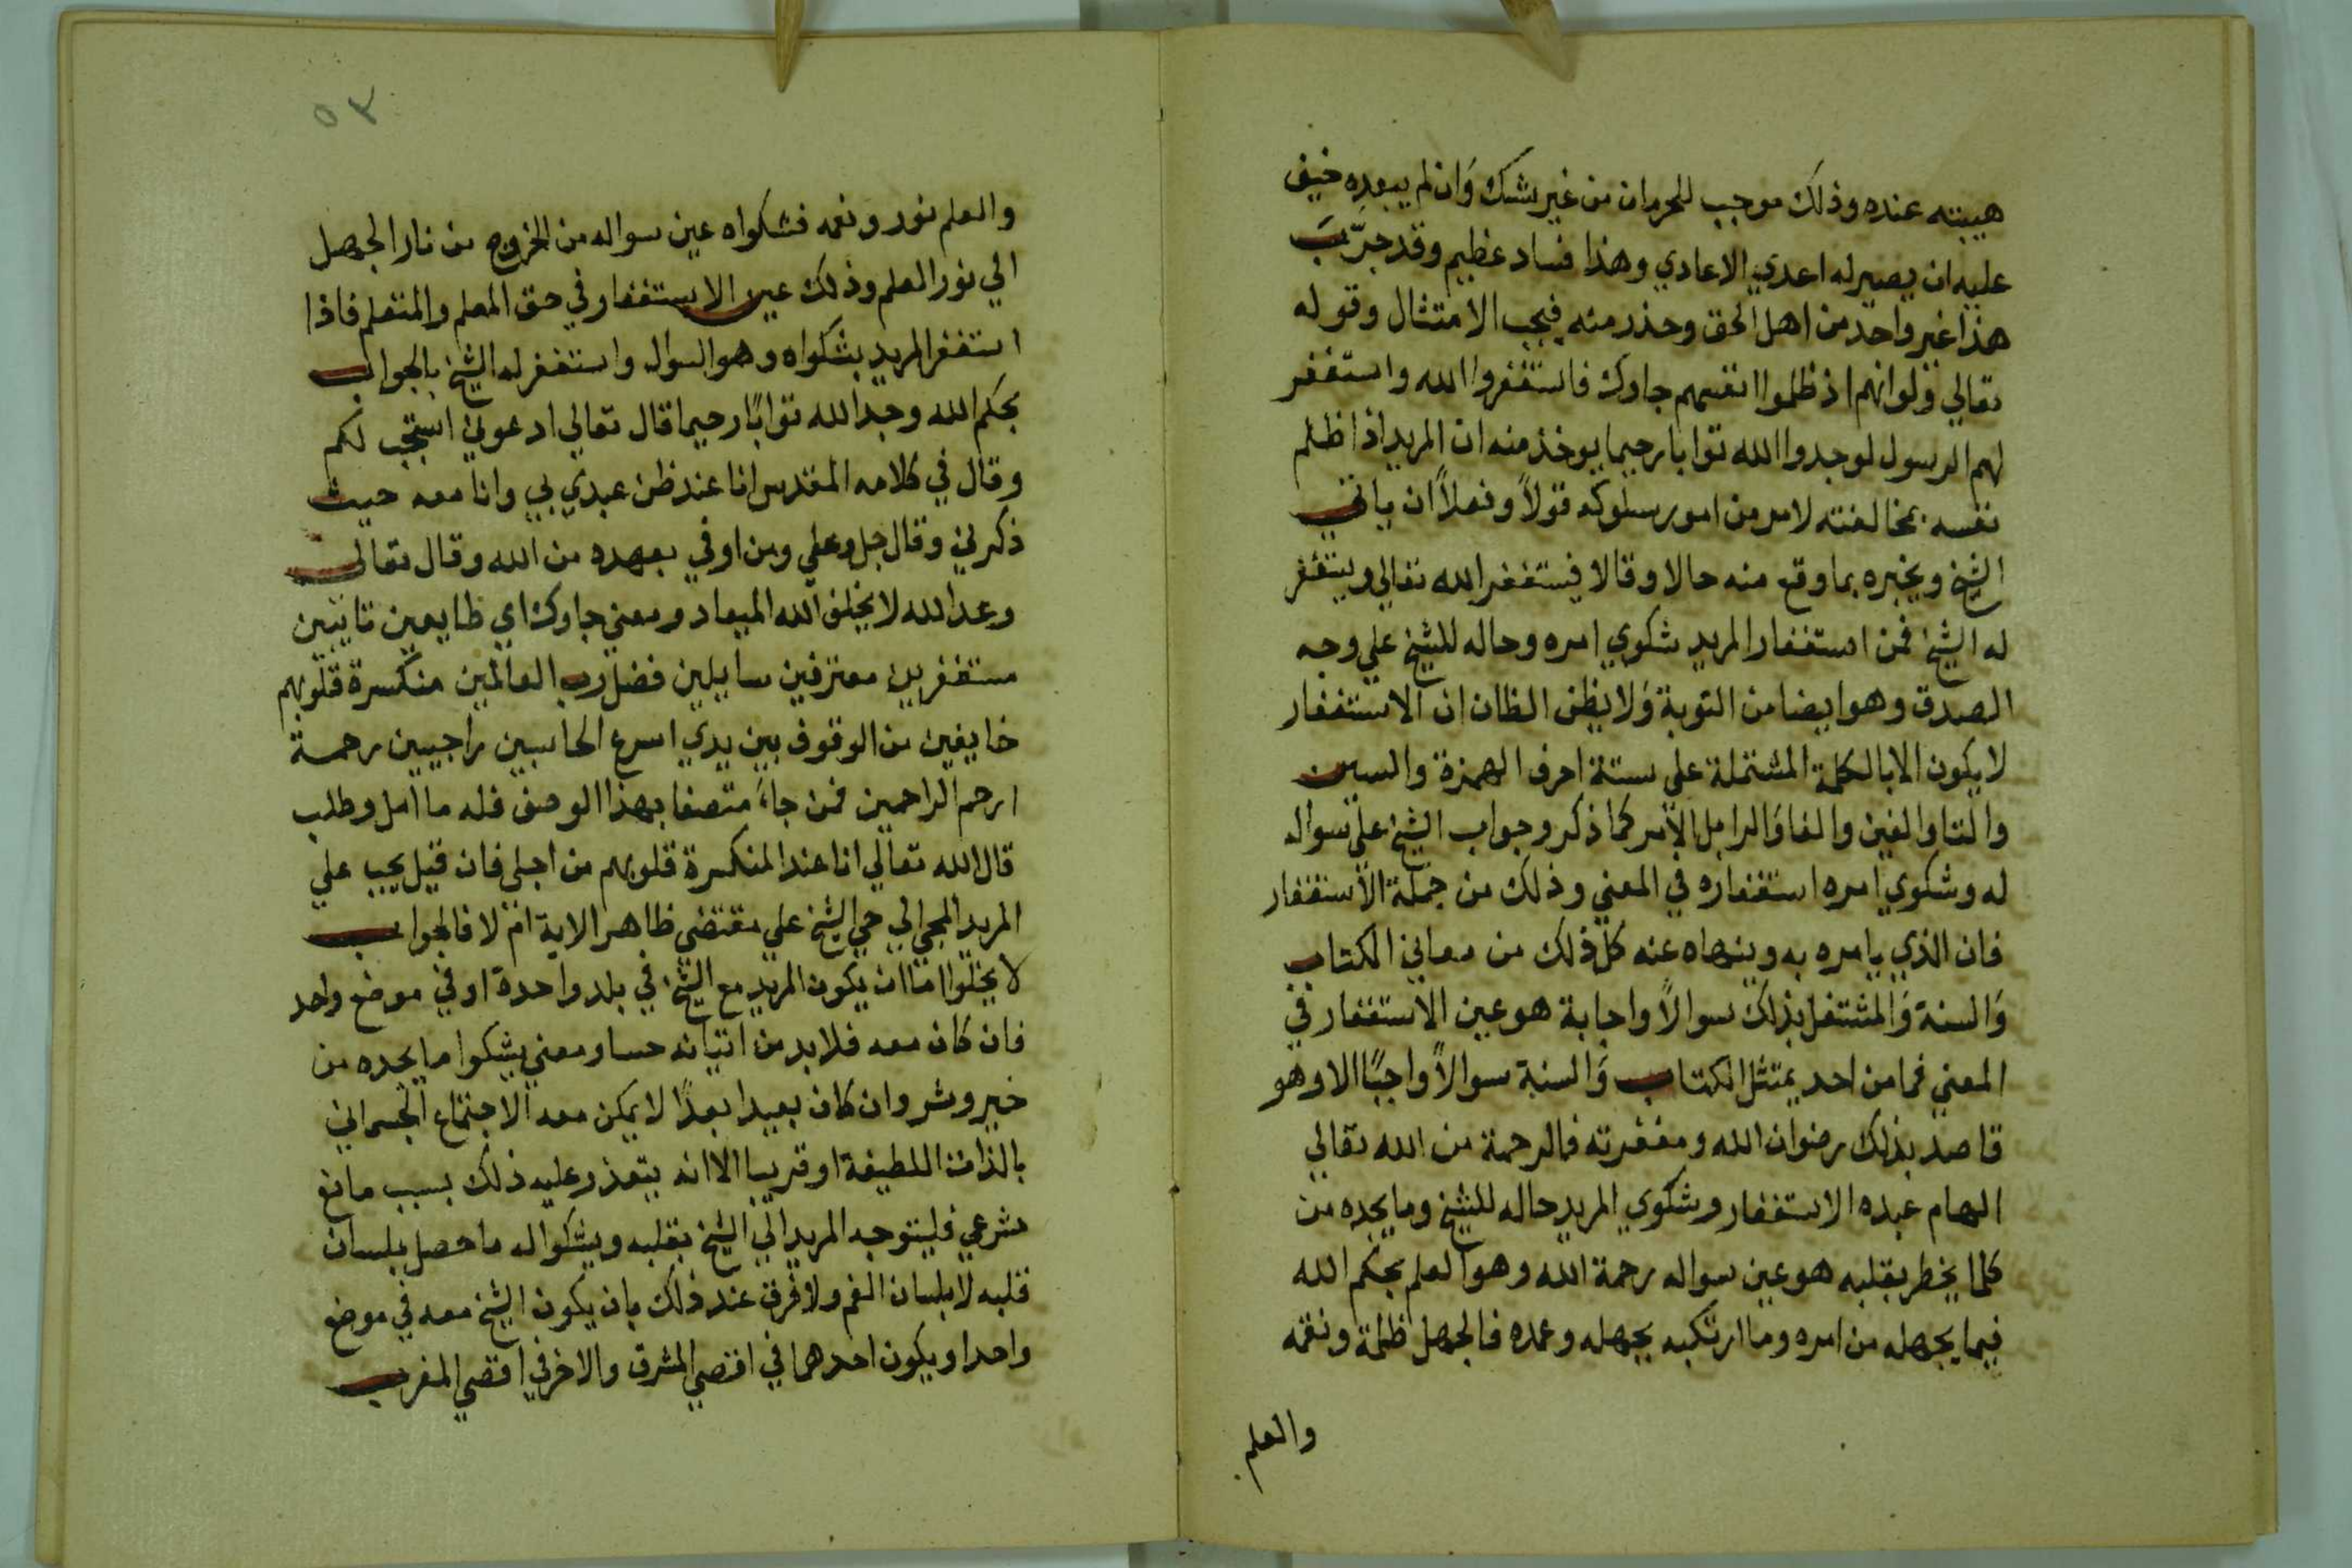 هيبته عنده وذلك موجب للحرمان من غير شك وان لم يبعده خيف
عليه ان يصير له اعدي الاعادي وهذا فساد عظيم وقد جرّب
هذا غير واحد من اهل الحق وحذر منه فيجب الامتثال وقوله
تعالي ولو انهم اذ ظلموا انفسهم جاوك فاستغفروا الله واستغفر
لهم الرسول لوجدوا الله توابا رحيما يوخذ منه ان المريد اذا ظلم
نفسه بمخالفته لامر من امور سلوكه قولاً وفعلاً ان ياتي
الشيخ ويخبره بما وقع منه حالا وقالا فيستغفر الله تعالي ويستغفر
له الشيخ فمن استغفار المريد شكوي امره وحاله للشيخ علي وجه
الصدق وهو ايضا من التوبة وَلا يظن الظان ان الاستغفار
لا يكون الا بالكلمة المشتملة علي ستة احرف الهمزة والسين
والتا والغين والفا وَالرا بل الامر كما ذكر وجواب الشيخ علي سواله
له وشكوي امره استغفاره في المعني وذلك من جملة الاستغفار
فان الذي يامره به وينهاه عنه كل ذلك من معاني الكتاب
وَالسنة وَالمشتغل بذلك سوالاً واجابة هو عين الاستغفار في
المعني فما من احد يمتثل الكتاب وَالسنة سوالاً واجبًا الا وهو
قاصد بذلك رضوان الله ومغفرته فالرحمة من الله تعالي
الهام عبده الاستغفار وشكوي المريد حاله للشيخ وما يجده من
كلما يخطر بقلبه هو عين سواله رحمة الله وهو العلم بحكم الله
فيما يجهله من امره وما ارتكبه بجهله وعمده فالجهل ظلمة ونقمه
والعلم
٥٣
والعلم نور ونعمه فشكواه عين سواله من الخروج من نار الجهل
الي نور العلم وذلك عين الاستغفار في حق المعلم والمتعلم فاذا
استغفر المريد بشكواه وهو السوال واستغفر له الشيخ بالجواب
بحكم الله وجد الله توابًا رحيما قال تعالي ادعوني استجب لكم
وقال في كلامه المقدس انا عند ظن عبدي بي وانا معه حيث
ذكرني وقال جل وعلي ومن اوفي بعهده من الله وقال تعالي
وعد الله لا يخلف الله الميعاد ومعني جاوك اي طايعين تايبين
مستغفرين معترفين سايلين فضل رب العالمين منكسرة قلوبهم
خايفين من الوقوف بين يدي اسرع الحاسبين راجيين رحمة
ارحم الراحمين فمن جاءَ متصفا بهذا الوصف فله ما امل وطلب
قال الله تعالي انا عند المنكسرة قلوبهم من اجلي فان قيل يجب علي
المريد المجي الي حي الشيخ علي مقتضي ظاهر الاية ام لا فالجواب
لا يخلوا اما ان يكون المريد مع الشيخ في بلد واحدة او في موضع واحد
فان كان معه فلا بد من اتيانه حسا ومعني يشكوا ما يجده من
خير وشر وان كان بعيدا بعدًا لا يمكن معه الاجتماع الجسماني
بالذات اللطيفة او قريبا الا انه يتعذر عليه ذلك بسبب مانع
شرعي فليتوجه المريد الي الشيخ بقلبه ويشكوا له ما حصل بلسان
قلبه لا بلسان الفم ولا فرق عند ذلك بان يكون الشيخ معه في موضع
واحد او يكون احدهما في اقصي المشرق والاخر في اقصي المغرب